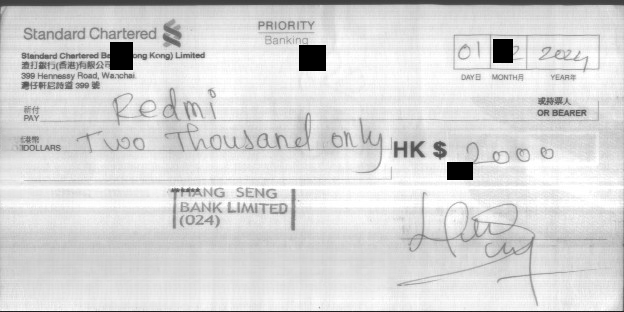 Standard Chartered
PRIORITY
Banking
Standard Chartered Ba ong Kong) Limited
渣打銀行(香港)有限公
399 Hennessy Road, Wanchai
灣仔軒尼詩道 399 號
01 2 2024
DAY日 MONTH月 YEAR年
祈付
PAY Redmi
或持票人
OR BEARER
港幣
DOLLARS Two Thousand only
HK $ 2000
HANG SENG
BANK LIMITED
(024)